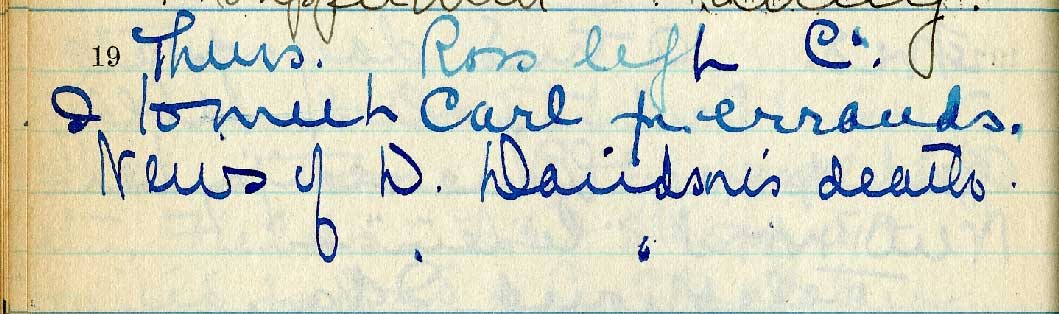 19 Thurs. Ross left C.
I to meet Carl & errands.
News of D. Davidson's death.